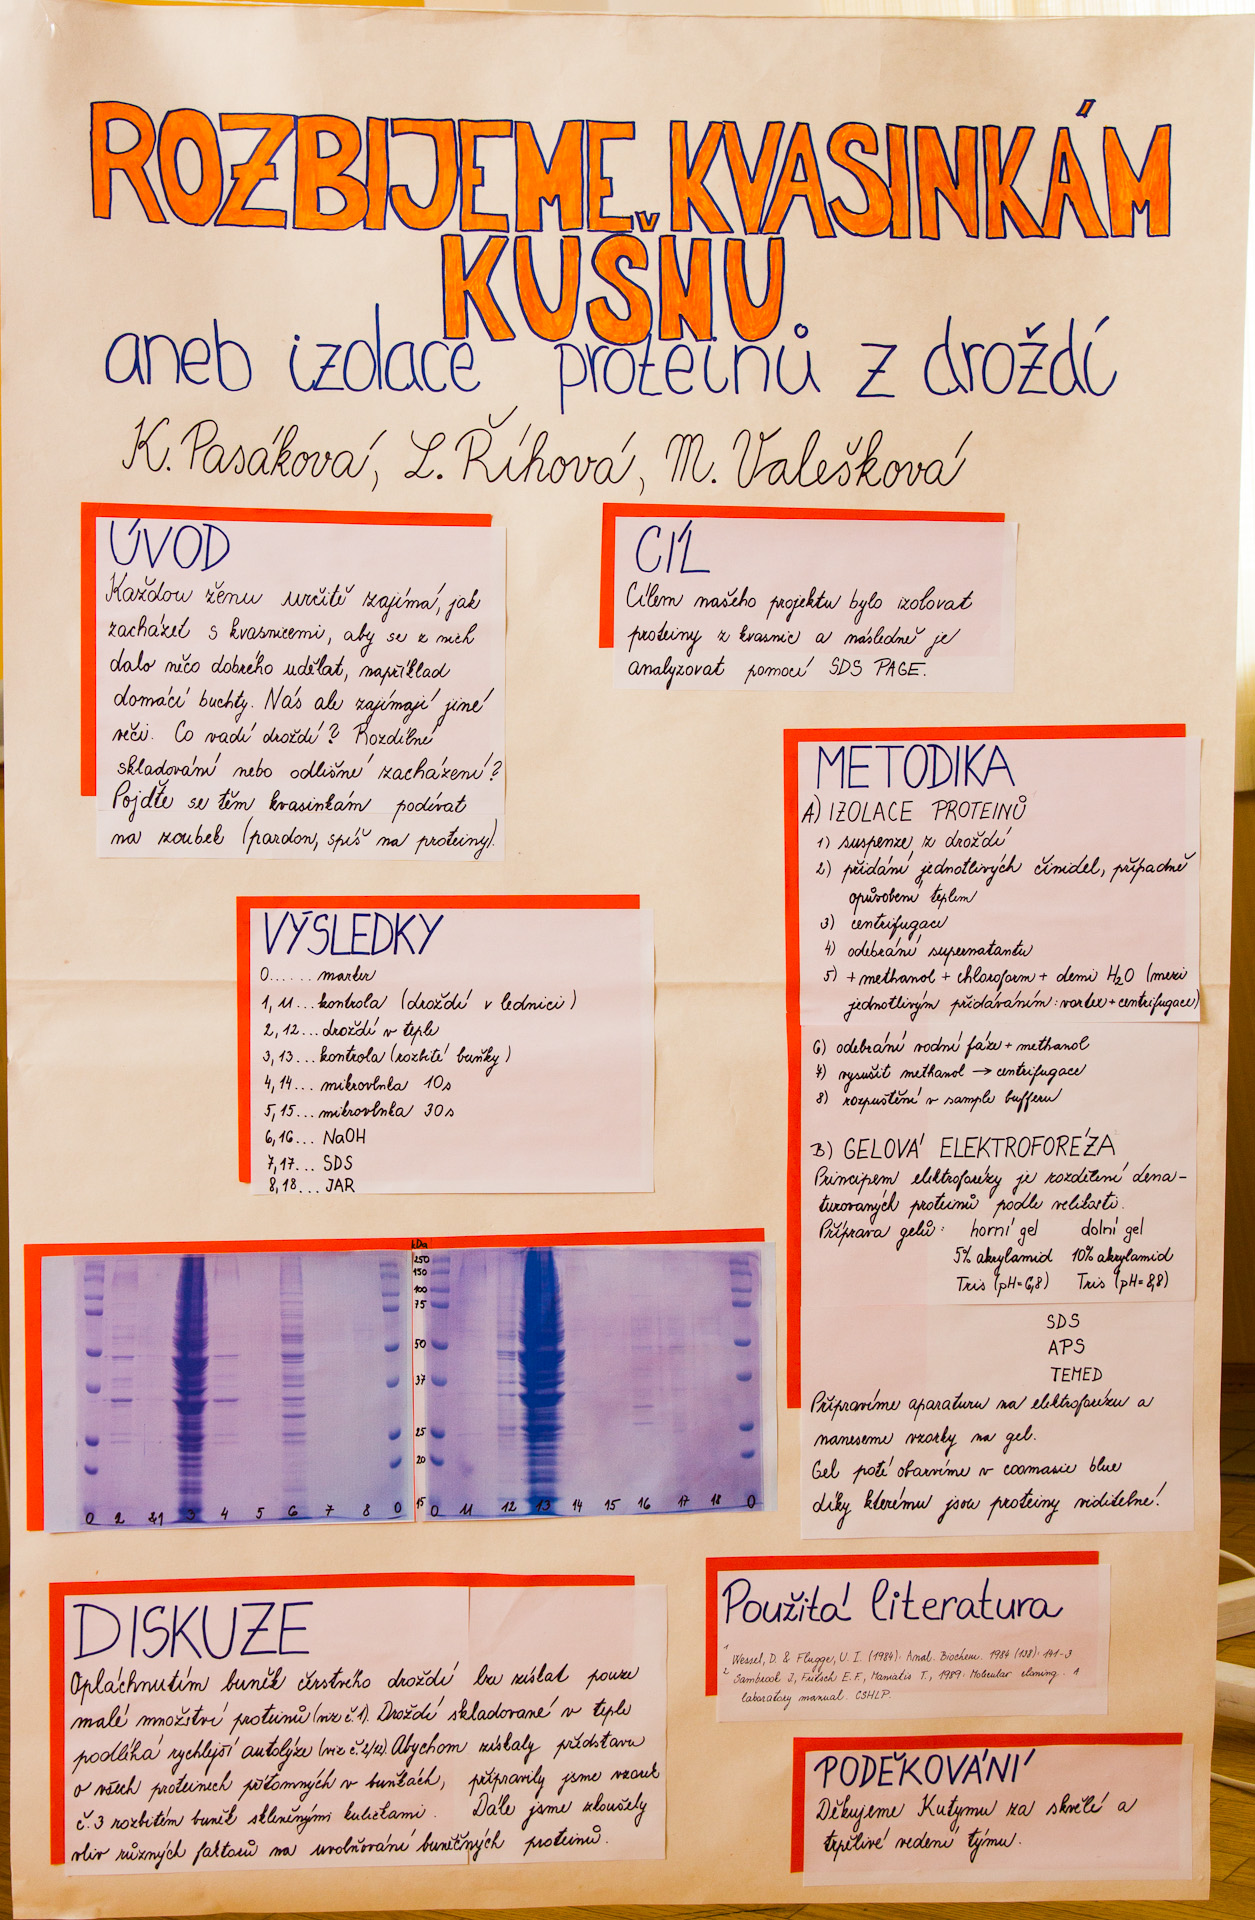 ROZBIJEME KVASINKÁM
KUŠNU
aneb izolace proteinů z droždí
K. Pasáková, L. Říhová, M. Valešková
ÚVOD
Každou ženu určitě zajímá, jak
zacházet s kvasnicemi, aby se z nich
dalo něco dobrého udělat, například
domácí buchty. Nás ale zajímají jiné
věci. Co vadí droždí? Rozdílné
skladování nebo odlišné zacházení?
Pojďte se těm kvasinkám podívat
na zoubek (pardon, spíš na proteiny).
CÍL
Cílem našeho projektu bylo izolovat
proteiny z kvasnic a následně je
analyzovat pomocí SDS PAGE.
METODIKA
A) IZOLACE PROTEINŮ
1) suspenze z droždí
2) přidání jednotlivých činidel, případně
působení teplem
3) centrifugace
4) odebrání supernatantu
5) + methanol + chloroform + demi H₂O (mezi
jednotlivým přidáváním: vortex + centrifugace)
6) odebrání vodní fáze + methanol
7) vysušit methanol → centrifugace
8) rozpuštění v sample bufferu
B) GELOVÁ ELEKTROFORÉZA
Principem elektroforézy je rozdělení dena-
turovaných proteinů podle velikosti.
Příprava gelů: horní gel dolní gel
5% akrylamid 10% akrylamid
Tris (pH=6,8) Tris (pH=8,8)
SDS
APS
TEMED
Připravíme aparaturu na elektroforézu a
naneseme vzorky na gel.
Gel poté obarvíme v coomasie blue
díky kterému jsou proteiny viditelné!
VÝSLEDKY
0...... marker
1, 11... kontrola (droždí v lednici)
2, 12... droždí v teple
3, 13... kontrola (rozbité buňky)
4, 14... mikrovlnka 10s
5, 15... mikrovlnka 30s
6, 16... NaOH
7, 17... SDS
8, 18... JAR
kDa
250
150
100
75
50
37
25
20
15
0 2 21 3 4 5 6 7 8 0
0 11 12 13 14 15 16 17 18 0
DISKUZE
Opláchnutím buněk čerstvého droždí lze získat pouze
malé množství proteinů (viz č.1). Droždí skladované v teple
podléhá rychlejší autolýze (viz č.2/12). Abychom získaly představu
o všech proteinech přítomných v buňkách, připravily jsme vzorek
č.3 rozbitém buněk skleněnými kuličkami. Dále jsme zkoušely
vliv různých faktorů na uvolňování buněčných proteinů.
Použitá literatura
1 Wessel, D. & Flugge, U. I. (1984). Anal. Biochem. 1984 (138): 141-3
2 Sambrook J, Fritsch E.F., Maniatis T., 1989: Molecular cloning. A
laboratory manual. CSHLP.
PODĚKOVÁNÍ
Děkujeme Kutymu za skvělé a
trpělivé vedení týmu.